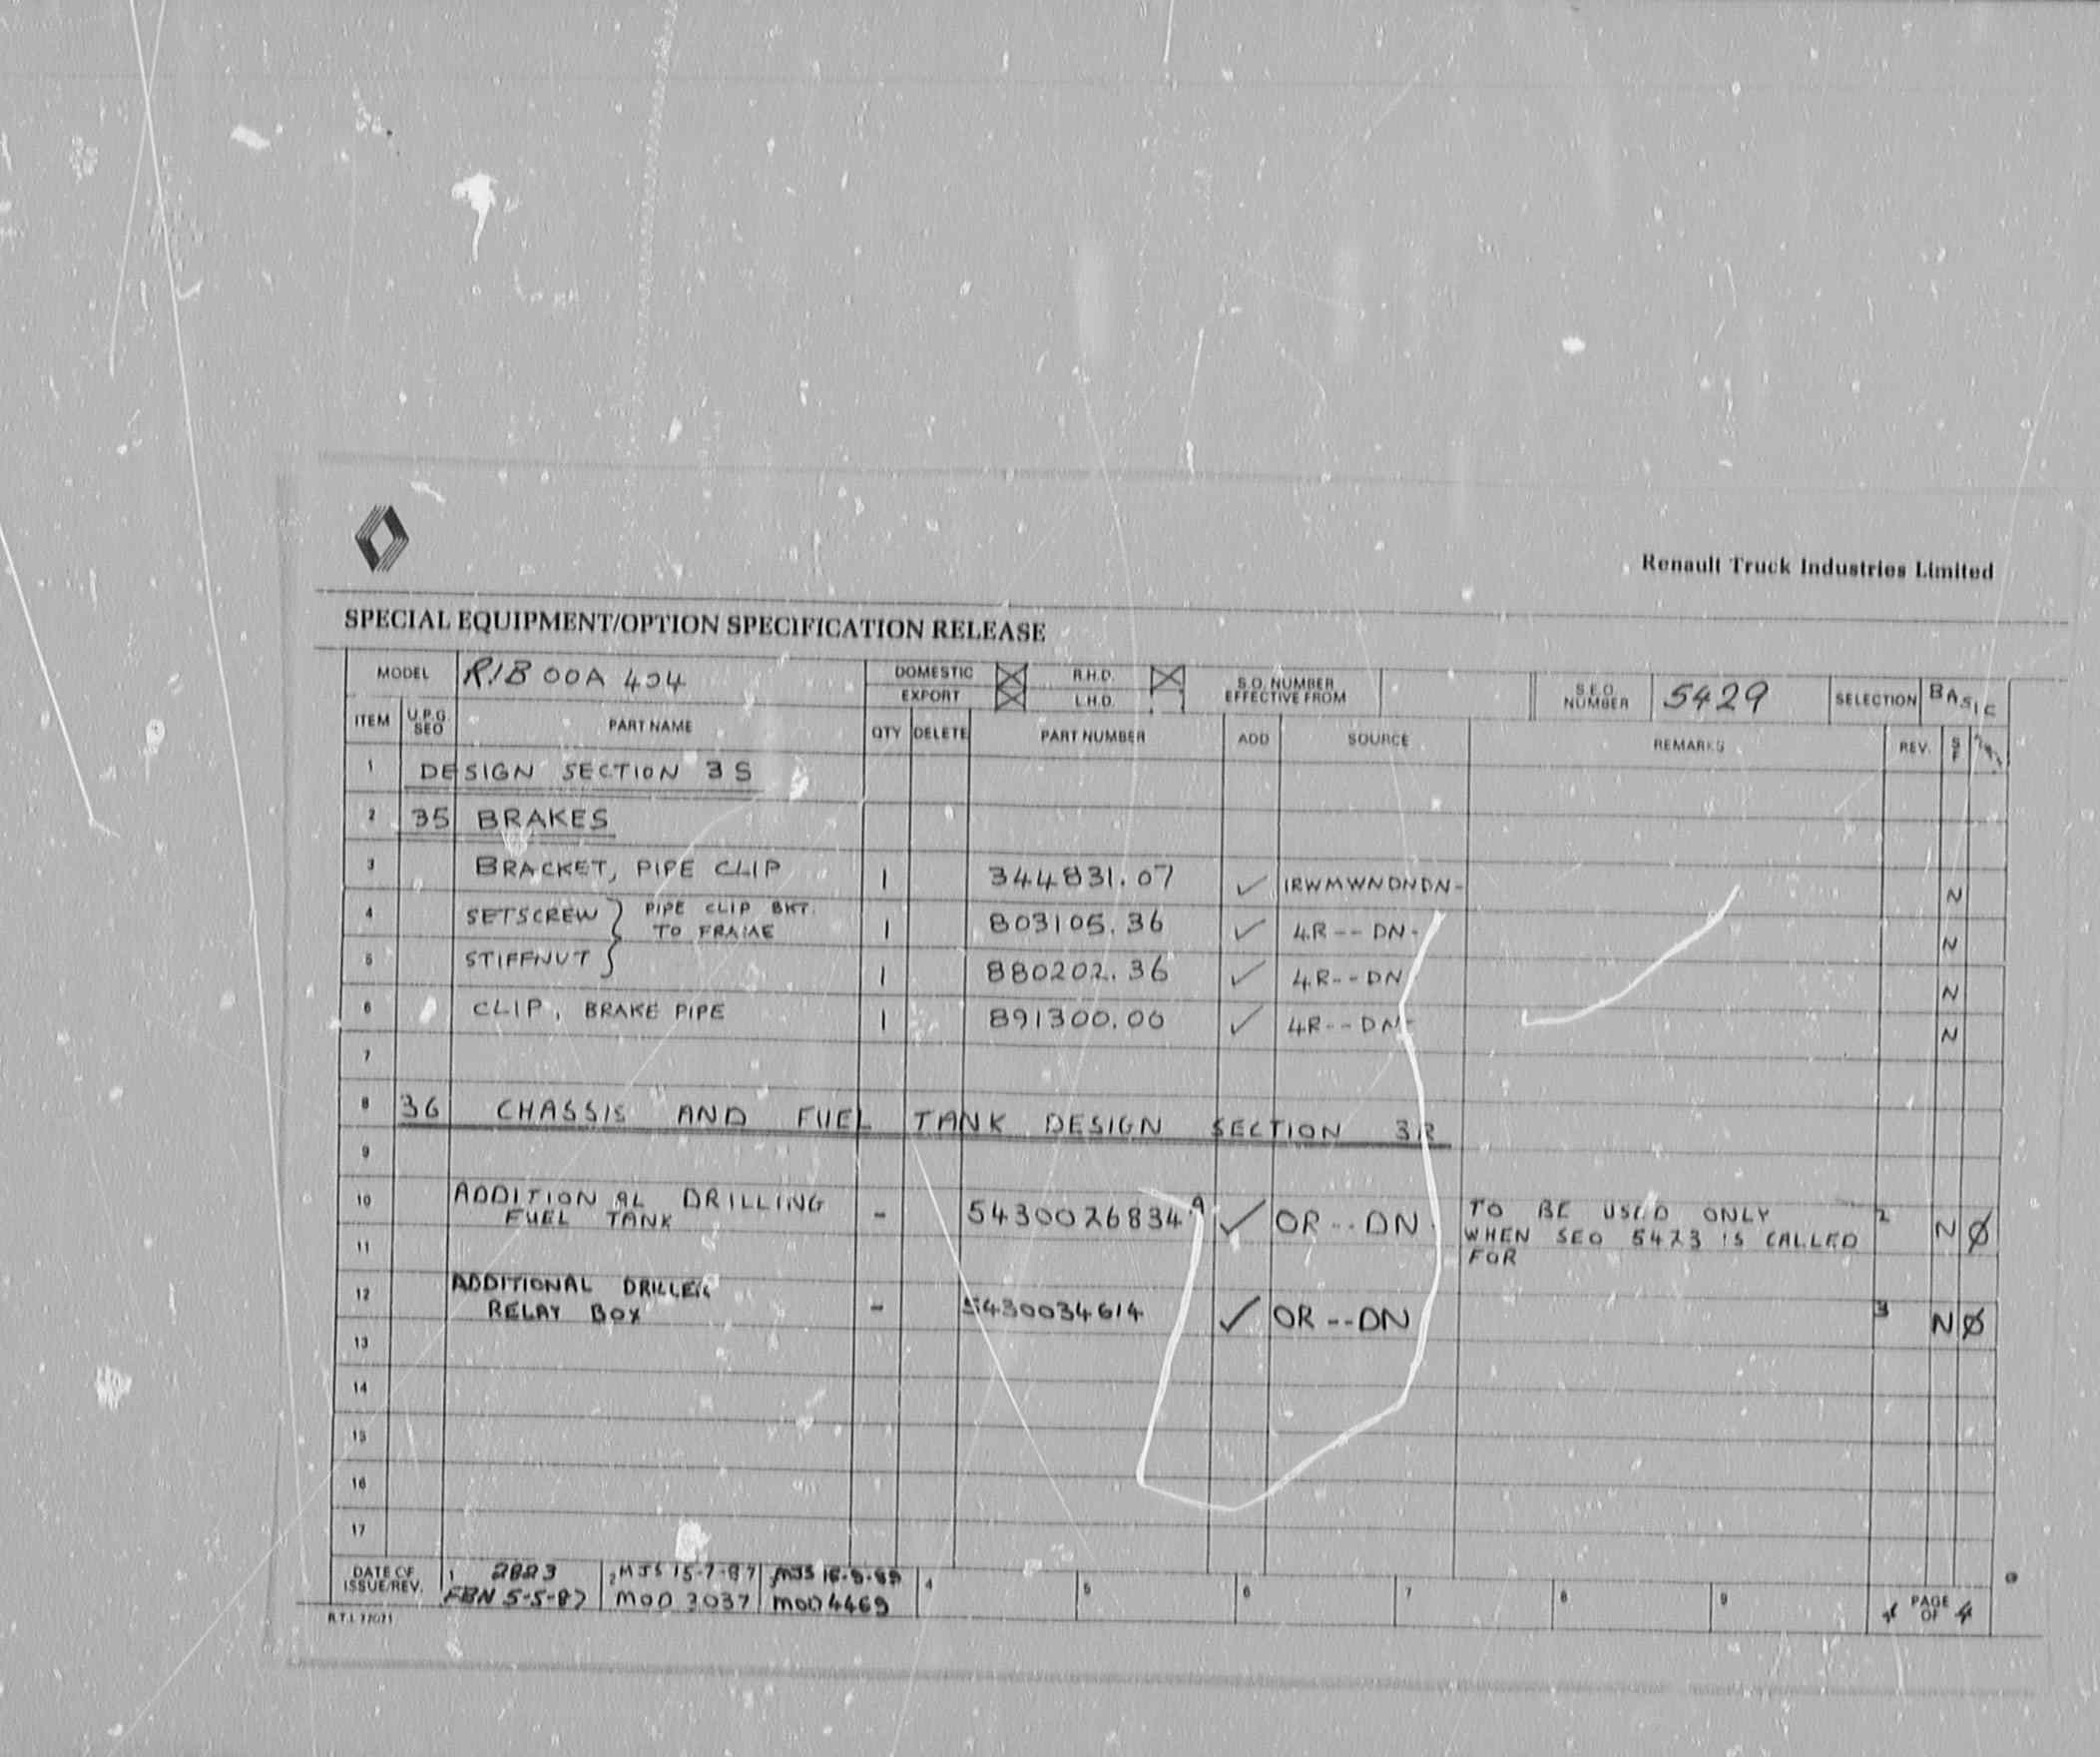 Renault Truck Industries Limited
SPECIAL EQUIPMENT/OPTION SPECIFICATION RELEASE
MODEL R1B00A 404 DOMESTIC R.H.D. S.O. NUMBER EFFECTIVE FROM S.E.O. NUMBER 5429 SELECTION BASIC
EXPORT L.H.D.
ITEM U.P.G. SEO PART NAME QTY DELETE PART NUMBER ADD SOURCE REMARKS REV.
1 DESIGN SECTION 3S
2 35 BRAKES
3 BRACKET, PIPE CLIP 1 344831.07 ✓ 1RWMWNDNDN- N
4 SETSCREW } PIPE CLIP BKT. TO FRAME 1 803105.36 ✓ 4R-- DN- N
5 STIFFNUT } 1 880202.36 ✓ 4R--DN N
6 CLIP, BRAKE PIPE 1 891300.00 ✓ 4R--DN- N
7
8 36 CHASSIS AND FUEL TANK DESIGN SECTION 3R
9
10 ADDITIONAL DRILLING 5430026834 A ✓ OR--DN TO BE USED ONLY 2 N Ø
FUEL TANK - WHEN SEO 5423 IS CALLED
11 FOR
12 ADDITIONAL DRILLER 3
RELAY BOX - 5430034614 ✓ OR--DN N Ø
13
14
15
16
17
DATE OF ISSUE/REV. 1 2823 2 MJS 15-7-87 MJS 4 5 6 7 8 9 PAGE OF 4
FBN 5-5-87 MOD 3037 MOD 4469
R.T.I.